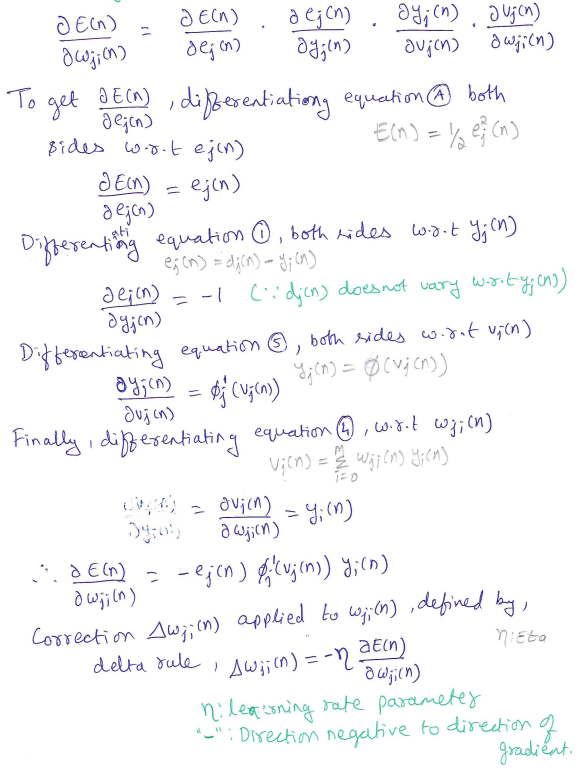 ∂E(n)/∂wji(n) = ∂E(n)/∂ej(n) · ∂ej(n)/∂yj(n) · ∂yj(n)/∂vj(n) · ∂vj(n)/∂wji(n)
To get ∂E(n)/∂ej(n) , differentiationg equation Ⓐ both
E(n) = ½ ej²(n)
sides w.r.t ej(n)
∂E(n)/∂ej(n) = ej(n)
Differentiating equation ①, both sides w.r.t yj(n)
ej(n) = dj(n) - yj(n)
∂ej(n)/∂yj(n) = -1 (∵ dj(n) doesnot vary w.r.t yj(n))
Differentiating equation ⑤, both sides w.r.t vj(n)
yj(n) = ϕ(vj(n))
∂yj(n)/∂vj(n) = ϕj'(vj(n))
Finally , differentiating equation ④, w.r.t wji(n)
vj(n) = Σ_{i=0}^{m} wji(n) yi(n)
= ∂vj(n)/∂wji(n) = yi(n)
∴ ∂E(n)/∂wji(n) = - ej(n) ϕj'(vj(n)) yi(n)
Correction Δwji(n) applied to wji(n) , defined by ,
η:Eta
delta rule , Δwji(n) = -η ∂E(n)/∂wji(n)
η: learning rate parameter
"-" : Direction negative to direction of
gradient.